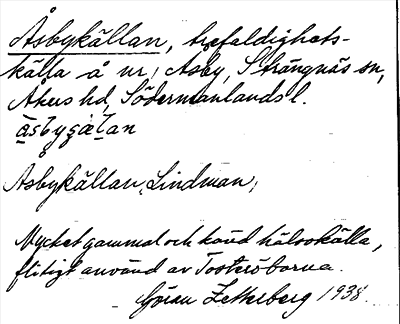 Åsbykällan, trefaldighets-
källa å nr 1 Åsby, Strängnäs sn,
Åkers hd, Södermanlands l.
åsbyçälan
Åsbykällan, Lindman,
Mycket gammal och känd hälsokälla,
flitigt använd av Tosteröborna.
Göran Zetterberg 1938.